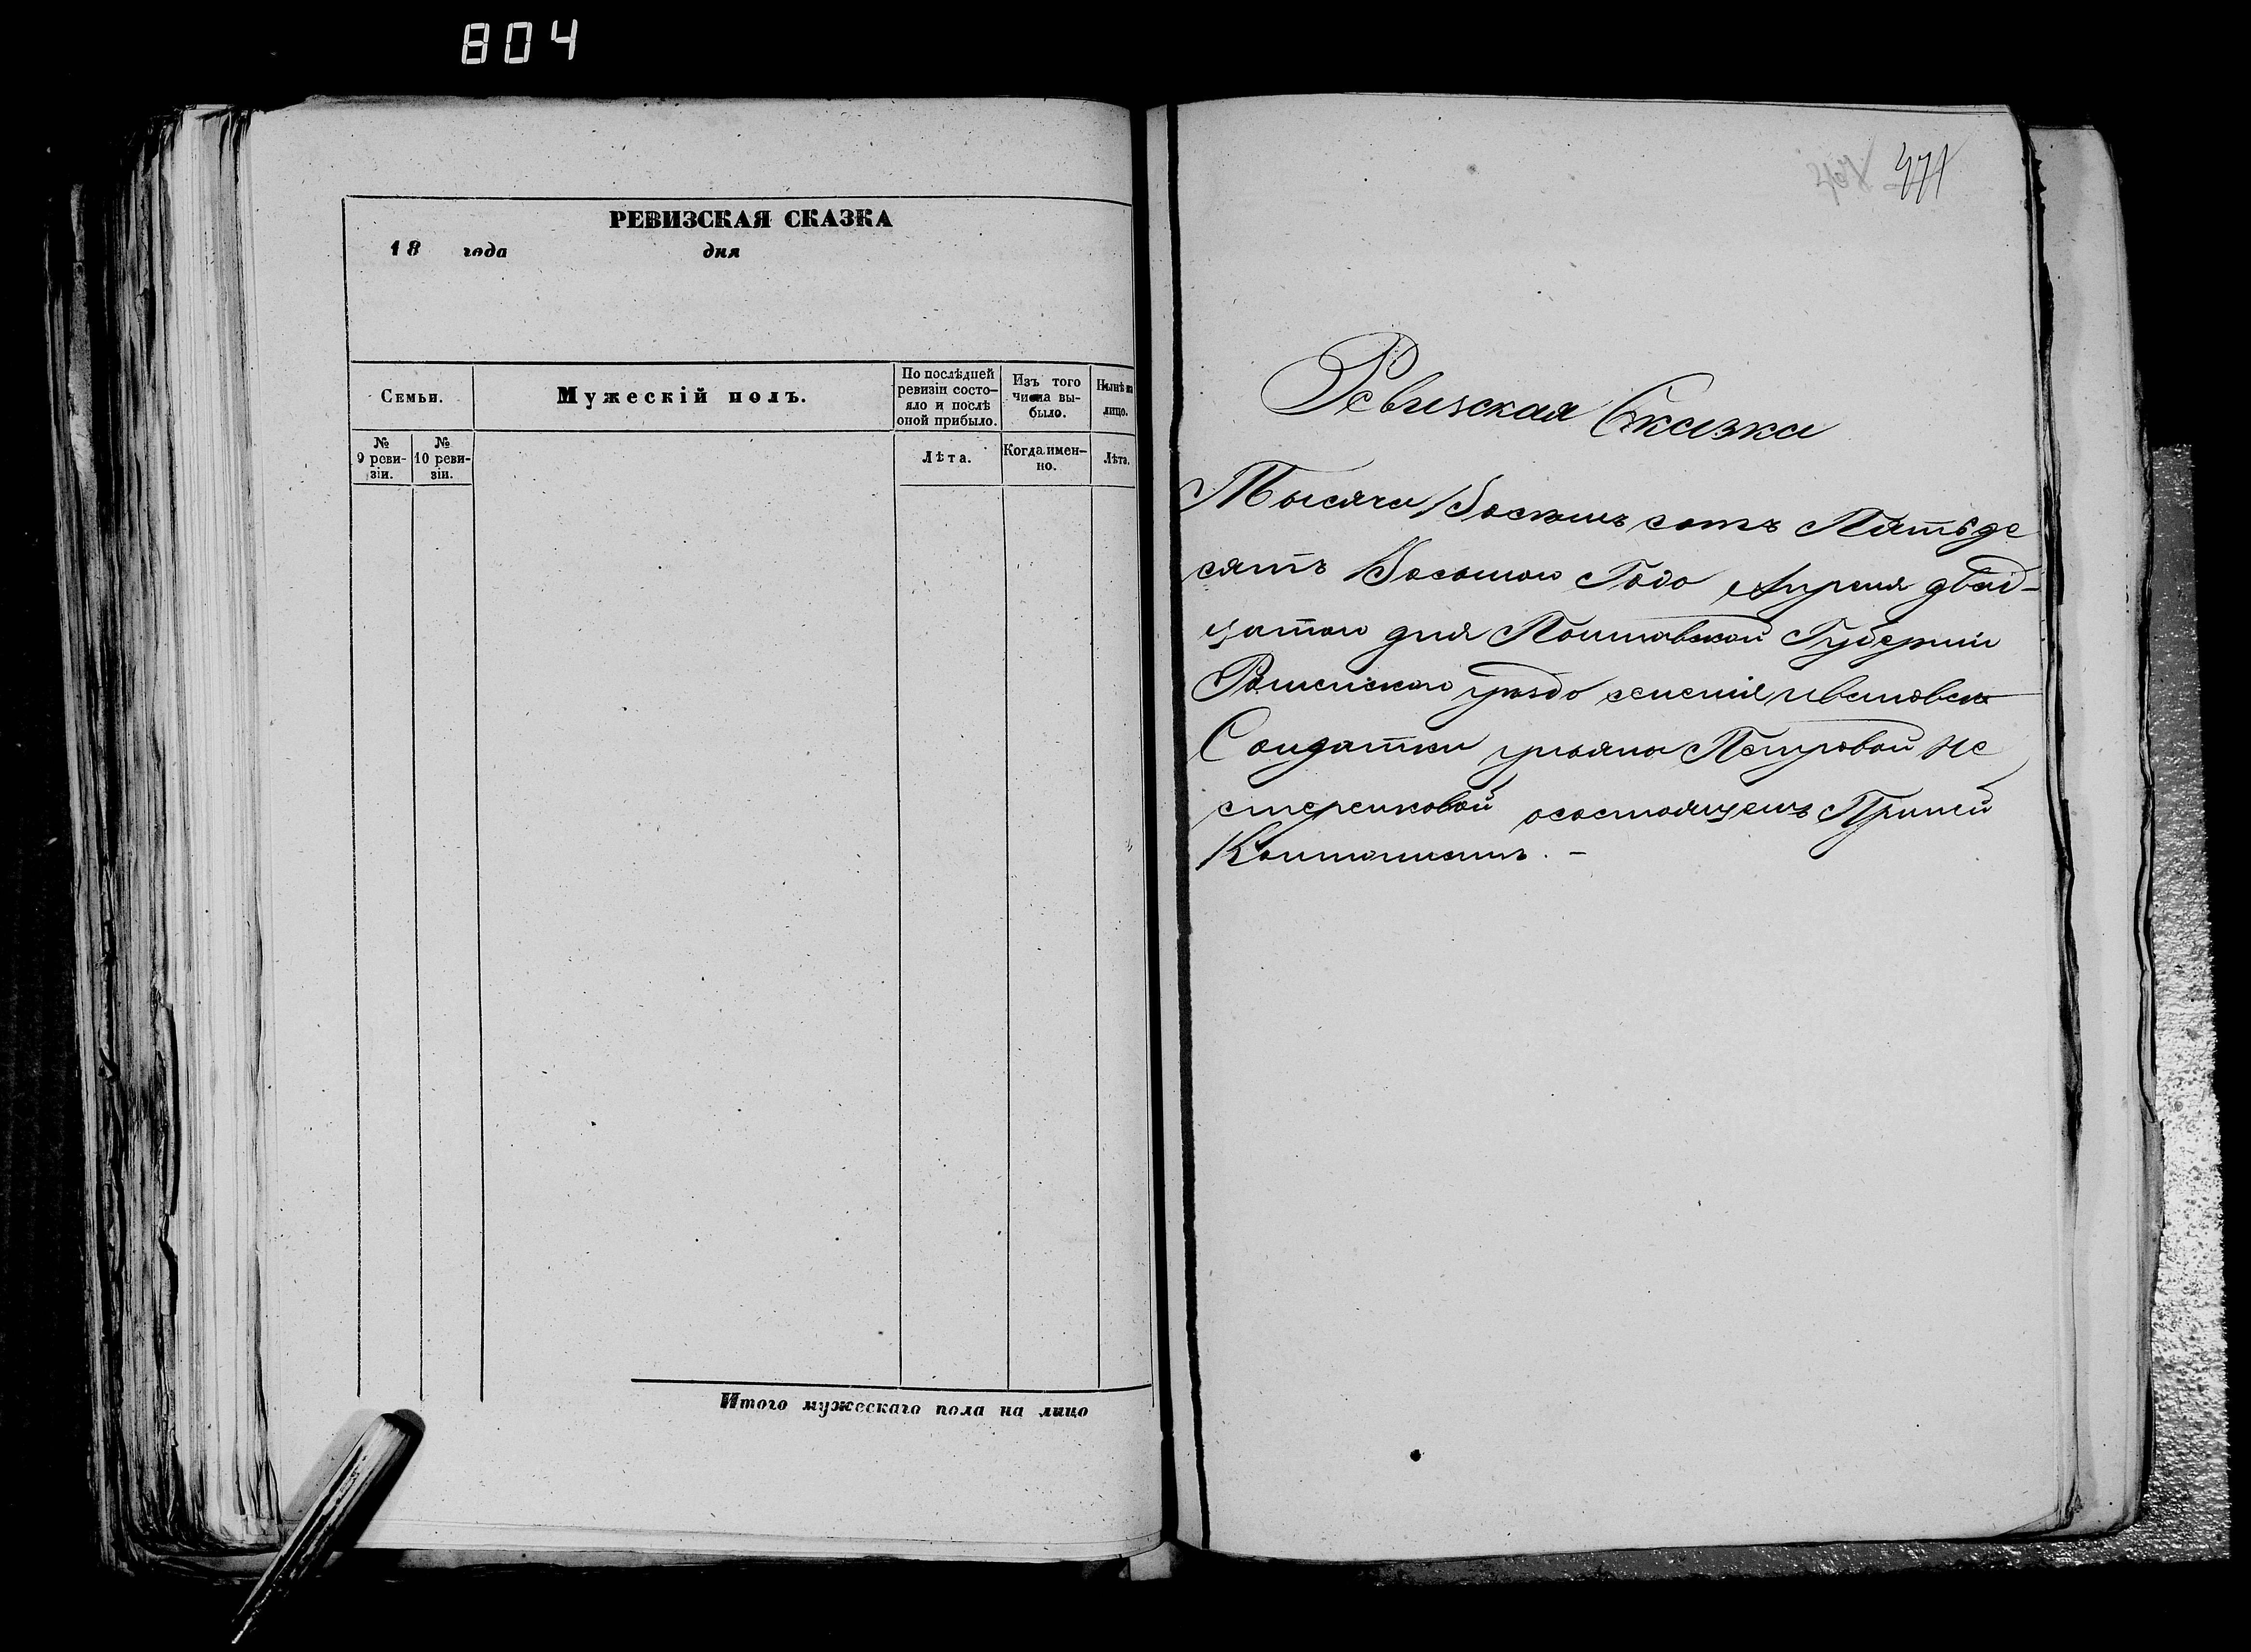 804
РЕВИЗСКАЯ СКАЗКА
18 года дня
Семьи.
Мужескій полъ.
По послѣдней
ревизіи состо-
яло и послѣ
оной прибыло.
Изъ того
числа вы-
было.
Нынѣ на
лицо.
№
9 реви-
зіи.
№
10 реви-
зіи.
Лѣта.
Когда имен-
но.
Лѣта.
Итого мужескаго пола на лицо
471
Ревизская Сказка
Тысяча Восемъ сотъ Пятьде
сятъ Восьмого Года Апреля двад-
цатого дня Полтавской Губерніи
Роменского уезда селенія
Солдатки ульяны Петровой Не
стеренковой осостоящемъ Приней